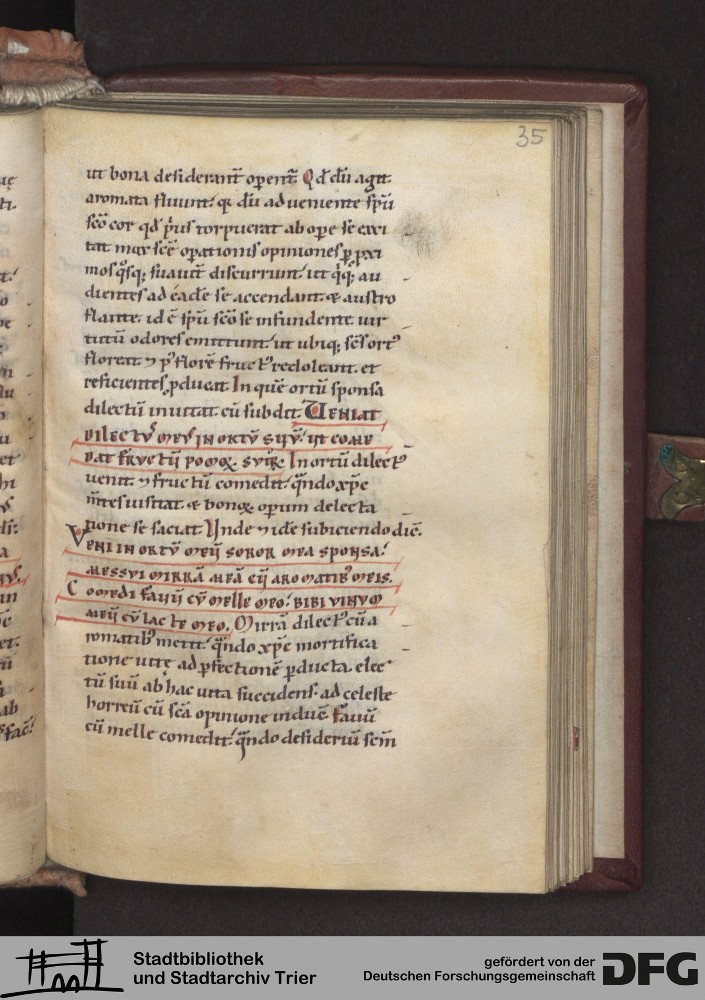 35
ut bona desiderant̄ operent̄. Qd̄ dū agit.
aromata fluunt. q̨ dū adveniente sp̄u
sc̄o cor qd̄ p̓us torpuerat ab ope se exci
tat mox sc̄e operationis opiniones p̱ pxi
mos q̓sq; suauit̄ discurrunt. ut q̓q; au
dientes ad eadē se accendant. & austro
flante. id ē sp̄u sc̄o se infundente uir
tutū odores emittunt. ut ubiq; sc̄s ort᷒
floreat ⁊ p᷒ florē fruct᷒ redoleant. et
reficientes pducat. In quē ortū sponsa
dilectū inuitat cū subdit. UENIAT
DILECTV̄ MEV̄ IN ORTV̄ SUV̄. UT COME
DAT FRVCTŪ POMOꝜ SVOꝜ. In ortū dilect᷒
uenit ⁊ fructū comedit. q̓ndo xp̄c
m̄tes uisitat. & bonoꝝ operum delecta
tione se saciat. Unde ⁊ ide subiciendo dic̄.
VENI IN ORTV̄ MEŪ SOROR MEA SPONSA.
MESSVI MIRRĀ MEĀ CŪ AROMATIB᷒ MEIS.
COMEDI FAUŪ CV̄ MELLE MEO. BIBI VINVM
MEŪ CV̄ LACTE MEO. Mirrā dilect᷒ cū a
romatib᷒ metit. q̓ndo xp̄c mortifica
tione uitę ad pfectionē pducta. elec
tū suū ab hac uita succidens. ad celeste
horreū cū sc̄a opinione induc̄. Fauū
cū melle comedit. q̓ndo desideriū sc̄m
Stadtbibliothek
und Stadtarchiv Trier
gefördert von der
Deutschen Forschungsgemeinschaft
DFG